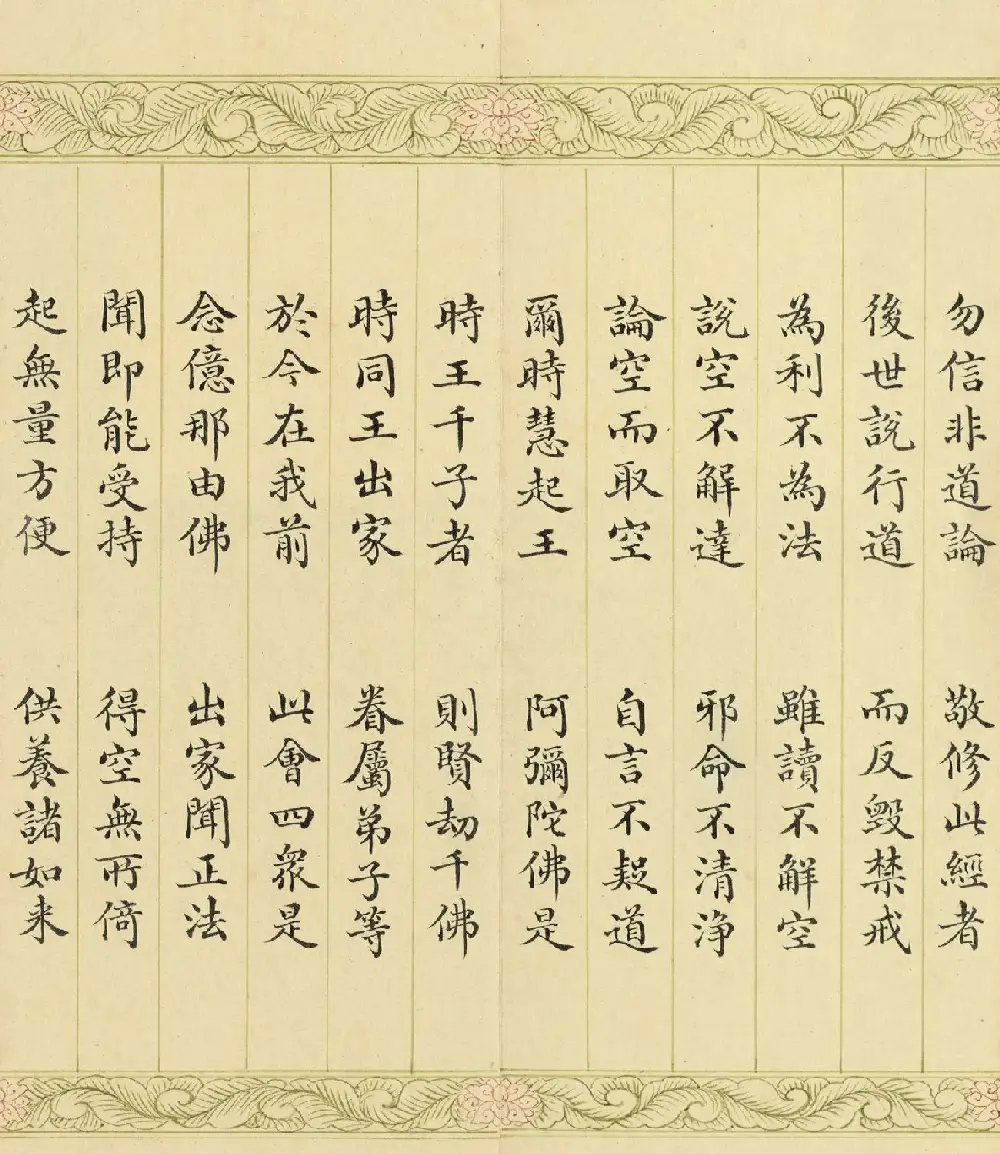 勿信非道論 敬修此經者
後世說行道 而反毀禁戒
為利不為法 雖讀不解空
說空不解達 邪命不清淨
論空而取空 自言不疑道
爾時慧起王 阿彌陀佛是
時王千子者 則賢劫千佛
時同王出家 眷屬弟子等
於今在我前 此會四眾是
念億那由佛 出家聞正法
聞即能受持 得空無所倚
起無量方便 供養諸如来